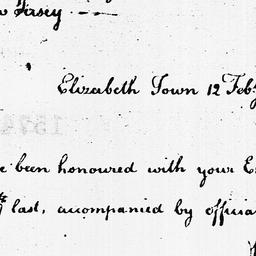 Jersey. —
Elizabeth Town 12 Feb
been honoured with your
last, accompanied by